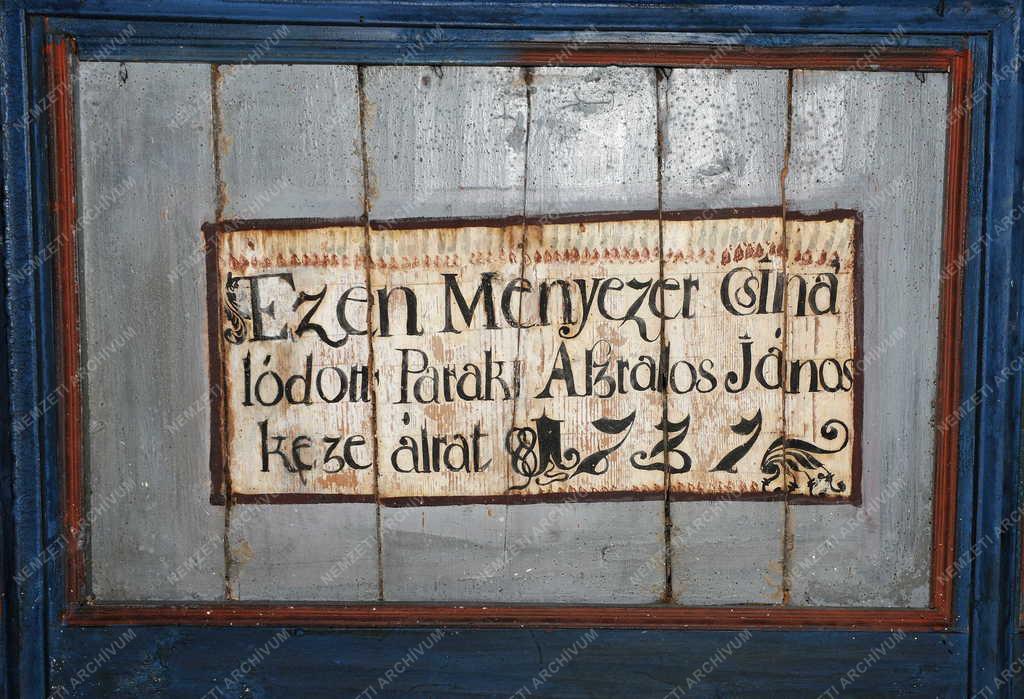 Ezen Menyezet Csiná
lódott Pataki Asztalos János
keze álrat 1737
NEMZETI ARCHÍVUM